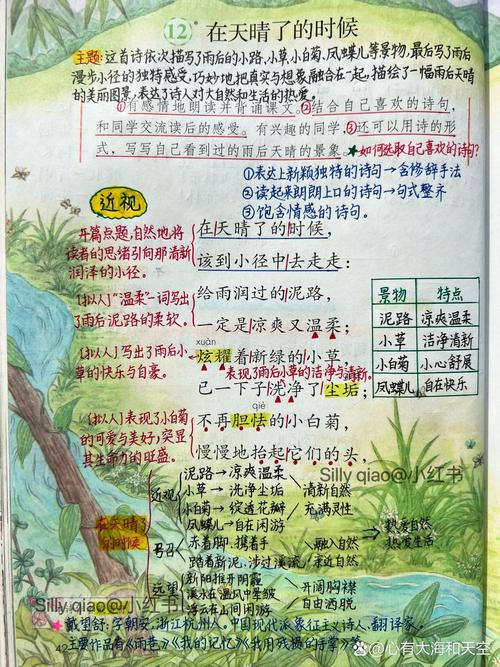 12* 在天晴了的时候
主题：这首诗依次描写了雨后的小路，小草，小白菊，凤蝶儿等景物，最后写了雨后
漫步小径的独特感受，巧妙地把真实与想象融合在一起，描绘了一幅雨后天晴
的美丽图景，表达了诗人对大自然和生活的热爱。
①有感情地朗读并背诵课文。②结合自己喜欢的诗句，
和同学交流读后的感受。有兴趣的同学，③还可以用诗的形
式，写写自己看到过的雨后天晴的景象。★如何选取自己喜欢的诗句？
①表达上新颖独特的诗句→含修辞手法
②读起来朗朗上口的诗句→句式整齐
③饱含情感的诗句。
近视
开篇点题，自然地将
读者的思绪引向那清新
润泽的小径。
在天晴了的时候，
该到小径中去走走：
[拟人]“温柔”一词写出
了雨后泥路的柔软。
给雨润过的泥路，
一定是凉爽又温柔；
[拟人]写出了雨后小
草的快乐与自豪。
xuàn
炫耀着新绿的小草，
表现了雨后小草的洁净与清新。
已一下子洗净了尘垢；
[拟人]表现了小白菊
的可爱与美好，突显
其生命力的旺盛。
qiè
不再胆怯的小白菊，
慢慢地抬起它们的头，
景物 特点
泥路 凉爽温柔
小草 洁净清新
小白菊 小心舒展
凤蝶儿 自在快乐
Silly qiao@小红书
在天晴了
的时候
近视
泥路→凉爽温柔
小草→洗净尘垢
小白菊→绽透花瓣
凤蝶儿→自在闲游
清新自然
充满灵性
赤着脚，携着手
踏着新泥，涉过溪流
融入自然
亲近自然
远望
新阳推开阴霾
溪水在温风中晕皱
浮云在山间闲游
开阔胸襟
自由洒脱
热爱自然
热爱生活
Silly qiao@小红书
★戴望舒：字朝安，浙江杭州人，中国现代派象征主义诗人、翻译家。
主要作品有《雨巷》《我的记忆》《我用残损的手掌》等
42
@心有大海和天空